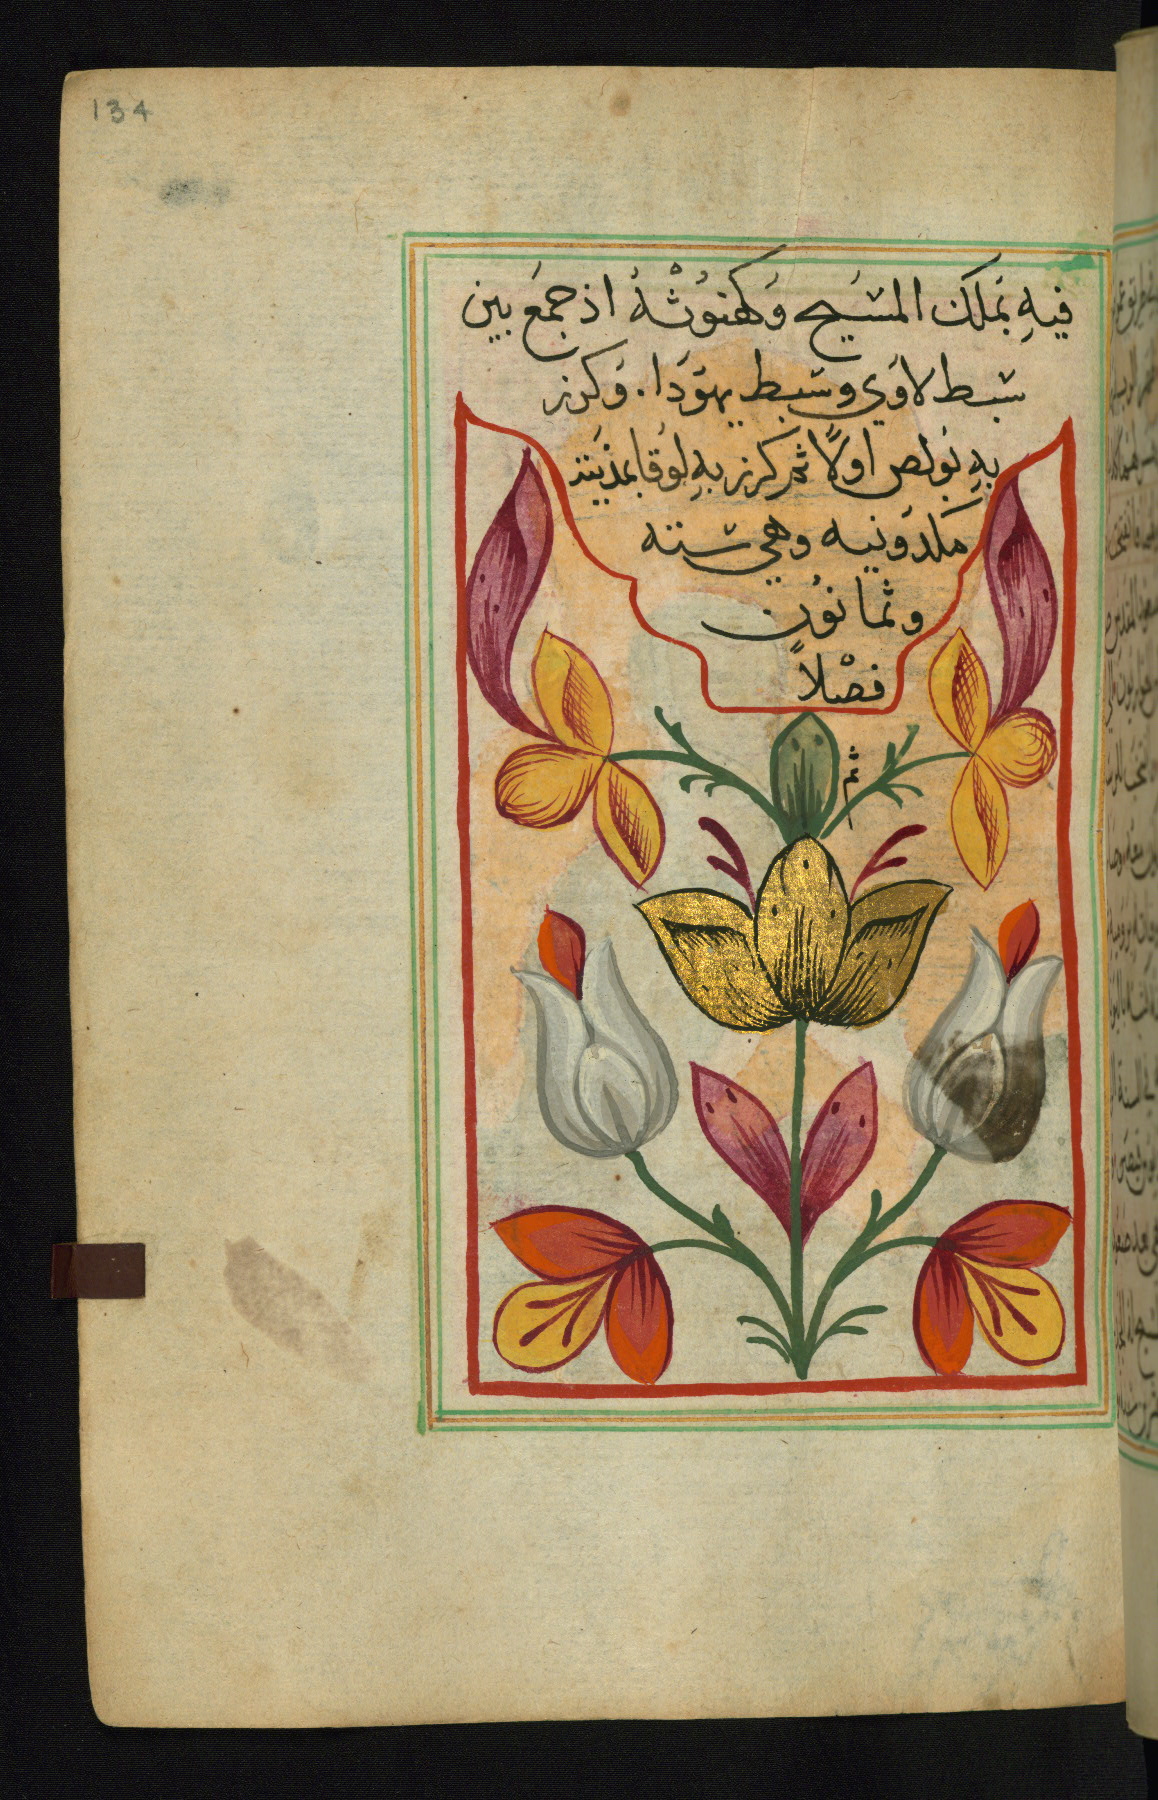 134
فيهِ تَملكَ المسَيح وَكهنوُتْهُ اذ جمعَ بين
سبط لاوَي وسبط يهوَدَا. وَكرز
بهِ بَولص اولاً ثم كرز بهِ لوُقا بمدَينة
مَكدوَنيه وهي ستة
وثمانوُن
فصْلاً
ثم